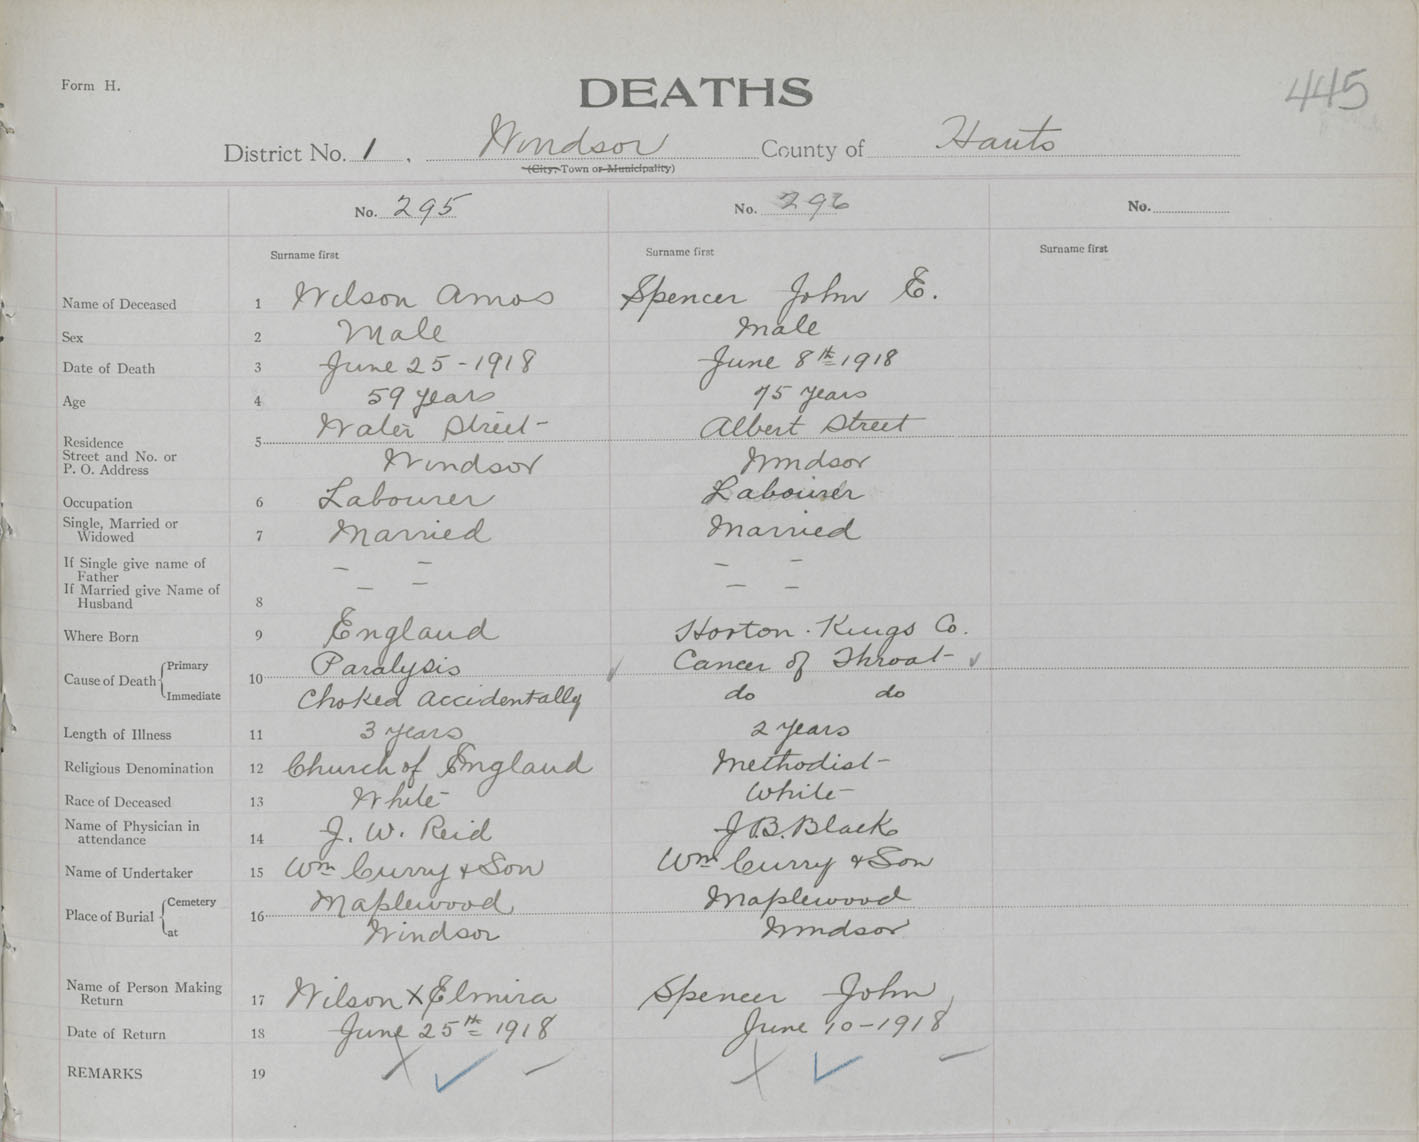 Form H.
DEATHS
445
District No. 1, Windsor County of Hants
(City, Town or Municipality)
No. 295 No. 296 No.
Surname first Surname first Surname first
Name of Deceased 1 Wilson Amos Spencer John E.
Sex 2 Male Male
Date of Death 3 June 25-1918 June 8th 1918
Age 4 59 years 75 years
Residence 5 Water Street Albert Street
Street and No. or
P. O. Address Windsor Windsor
Occupation 6 Labourer Labourer
Single, Married or
Widowed 7 Married Married
If Single give name of
Father
If Married give Name of
Husband 8
Where Born 9 England Horton. Kings Co.
Cause of Death Primary 10 Paralysis Cancer of Throat
Immediate Choked Accidentally do do
Length of Illness 11 3 years 2 years
Religious Denomination 12 Church of England Methodist
Race of Deceased 13 White White
Name of Physician in
attendance 14 J. W. Reid J.B. Black
Name of Undertaker 15 Wm Curry & Son Wm Curry & Son
Place of Burial Cemetery 16 Maplewood Maplewood
at Windsor Windsor
Name of Person Making
Return 17 Wilson X Elmira Spencer John
Date of Return 18 June 25th 1918 June 10-1918
REMARKS 19